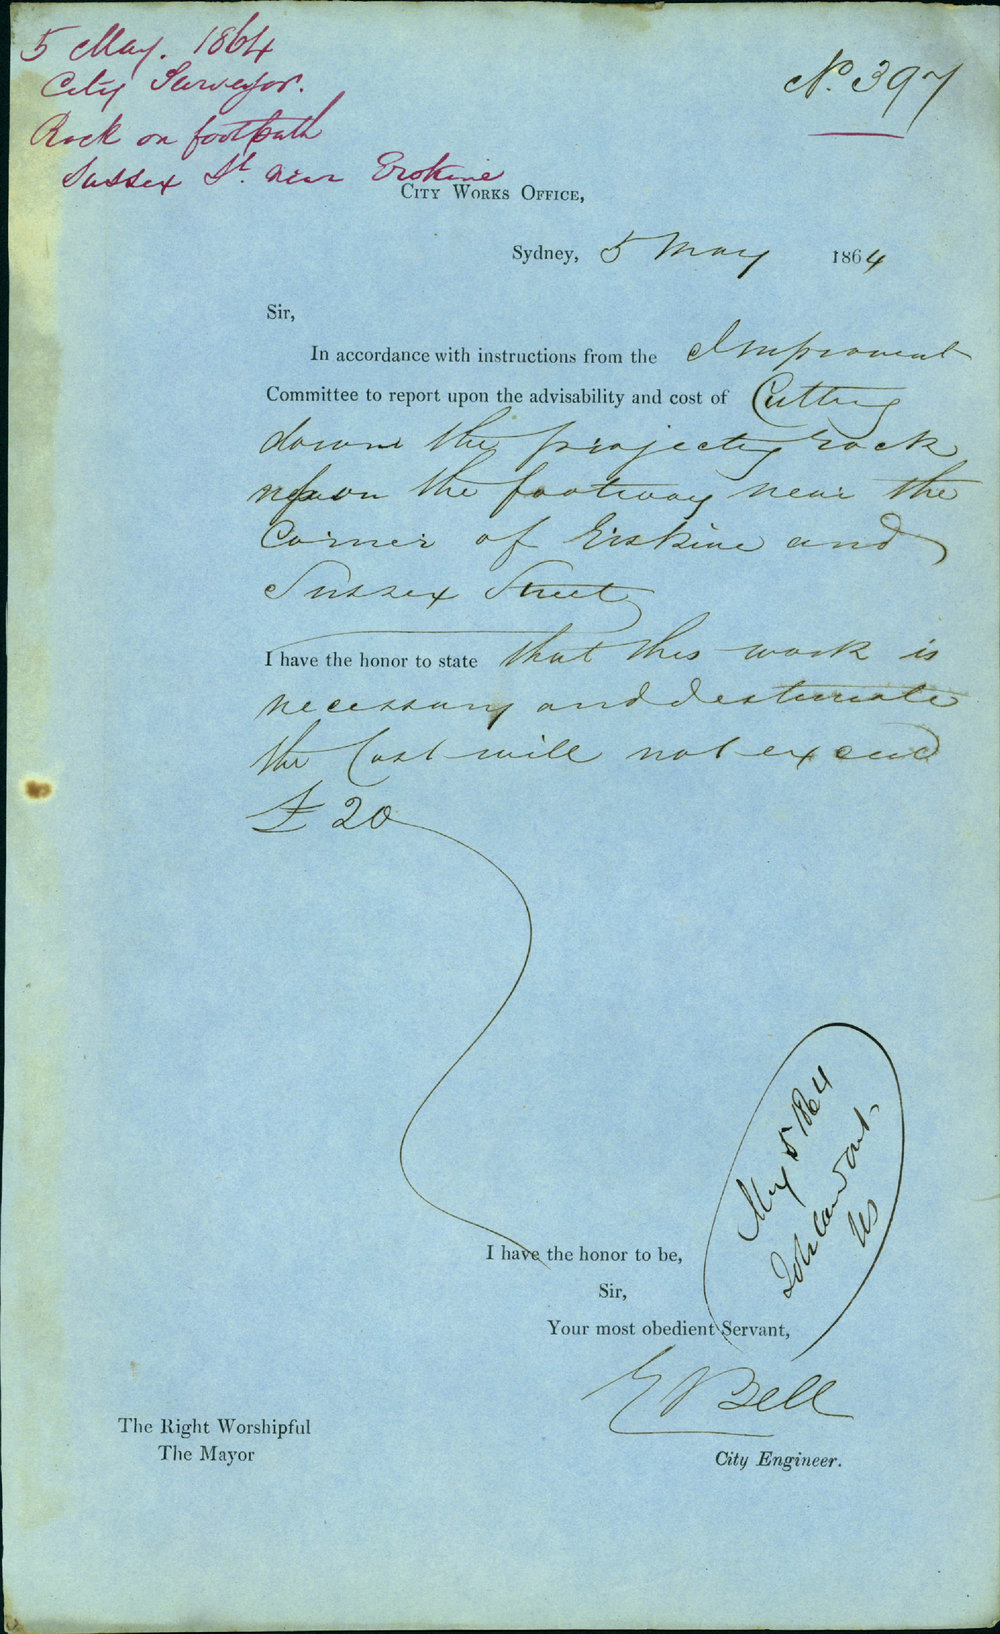 5 May. 1864
City Surveyor.
Rock on footpath
Sussex St. near Erskine
No. 397
City Works Office,
Sydney, 5 May 1864
Sir,
In accordance with instructions from the Improvemt
Committee to report upon the advisability and cost of Cutting
down the projecting rock
upon the footway near the
Corner of Erskine and
Sussex Street
I have the honor to state that this work is
necessary and I estimate
the Cost will not exceed
£20
May 5 1864
I have the honor to be,
Sir,
Your most obedient Servant,
E Bell
City Engineer.
The Right Worshipful
The Mayor